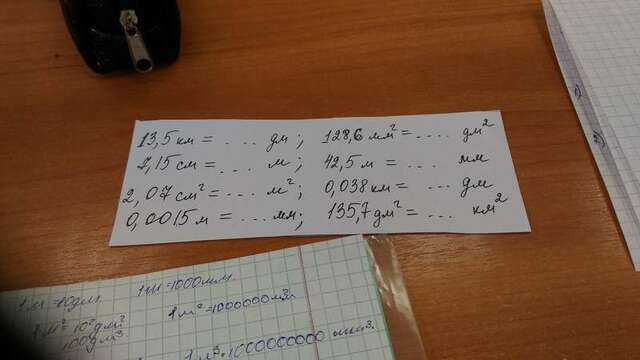 13,5 км = ... дм; 128,6 мм² = .... дм²
7,15 см = ... м; 42,5 м = .... мм
2,07 см² = ... м²; 0,038 км = ... дм
0,0015 м = ... мм; 135,7 дм² = ... км²
1м = 10дм 1м = 1000мм
1м² = 10² дм² 1м² = 1000000мм²
100дм²
1м³ = 1000000000 мм³.